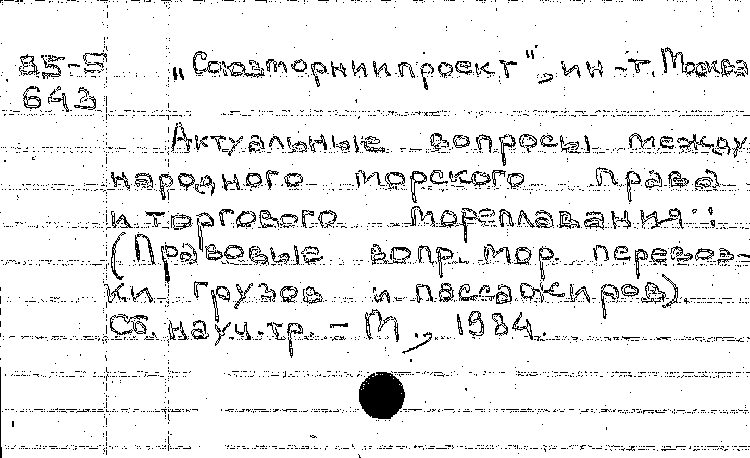 85-5 „Союзморниипроект", ин-т. Москва
643
Актуальные вопросы между
народного морского права
и торгового мореплавания:
(Правовые вопр. мор. перевоз-
ки грузов и пассажиров).
Сб. науч. тр. - М., 1984.